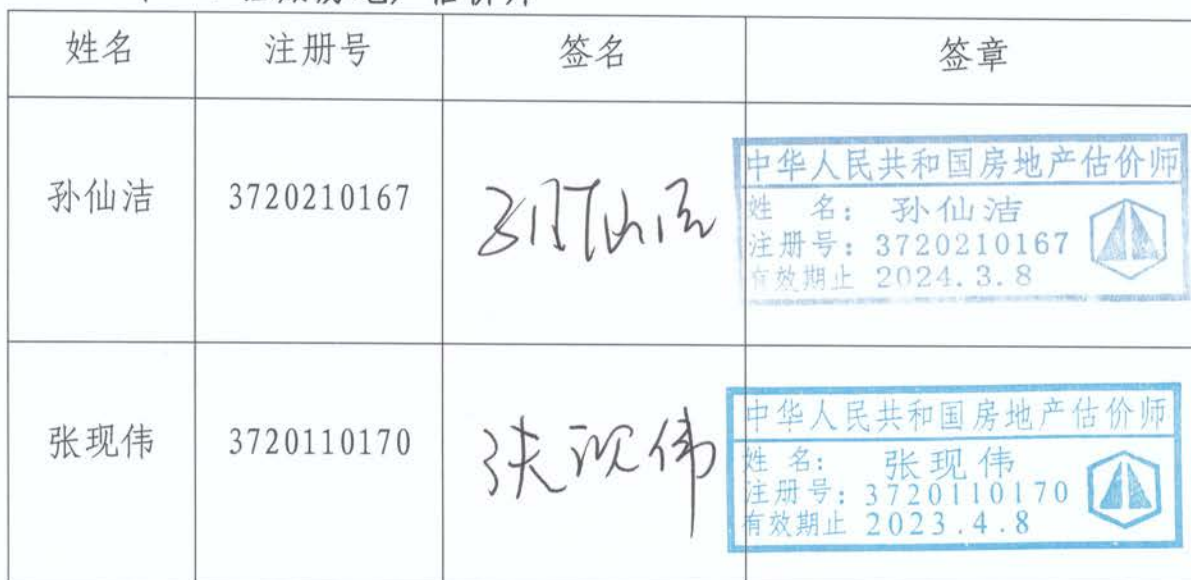 姓名 注册号 签名 签章
孙仙洁 3720210167 孙仙洁
中华人民共和国房地产估价师
姓 名: 孙仙洁
注册号: 3720210167
有效期止 2024.3.8
张现伟 3720110170 张现伟
中华人民共和国房地产估价师
姓 名: 张现伟
注册号: 3720110170
有效期止 2023.4.8